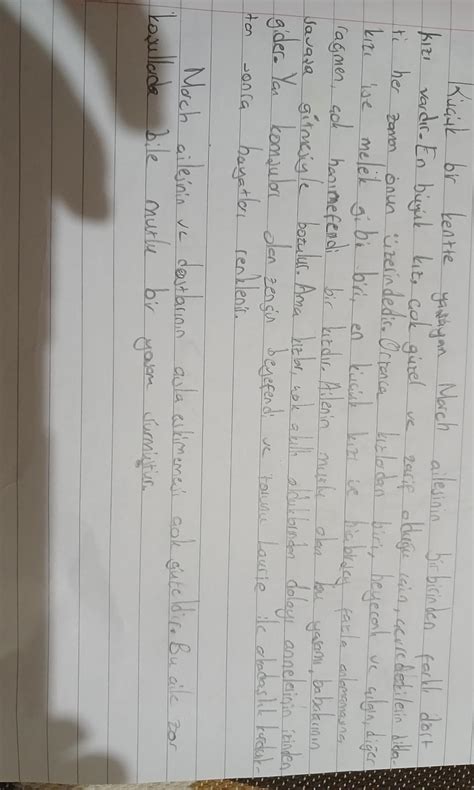 Küçük bir kentte yaşayan March ailesinin birbirinden farklı dört
kızı vardır. En büyük kız, çok güzel ve zarif olduğu için, çevredekilerin dikka-
ti her zaman onun üzerindedir. Ortanca kızlardan biri, heyecanlı ve çılgın, diğer
kızı ise melek gibi biri, en küçük kızı ise hiçbirşeyi fazla anlamamasına
rağmen, çok hanımefendi bir kızdır. Ailenin mutlu olan bu yaşamı, babalarının
savaşa gitmesiyle bozulur. Ama kızlar, çok akıllı olduklarından dolayı annelerinin izinden
gider. Yan komşuları olan zengin beyefendi ve torunu Laurie ile arkadaşlık kurduk-
tan sonra hayatları renklenir.
March ailesinin ve dostlarının asla eskimemesi çok güzeldir. Bu aile zor
koşullarda bile mutlu bir yaşam sürmüştür.